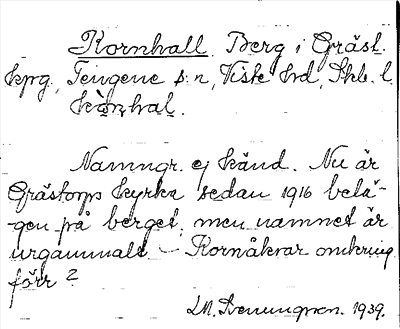 Kornhall. Berg i Gräst.
kpg, Tengene s:n, Viste hd, Skb. l.
kòṇhal.
Namngr. ej känd. Nu är
Grästorps kyrka sedan 1916 belä-
gen på berget, men namnet är
urgammalt – Kornåkrar omkring
förr?
1939.